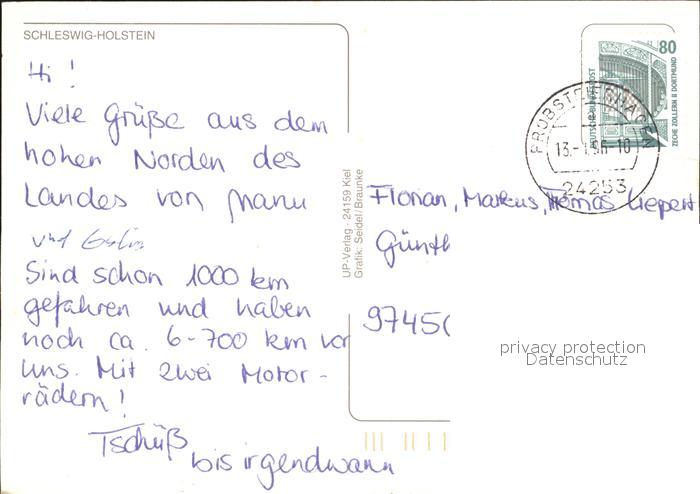 SCHLESWIG-HOLSTEIN
Hi!
Viele Grüße aus dem
hohen Norden des
Landes von Manu
und
Sind schon 1000 km
gefahren und haben
noch ca. 6-700 km vor
uns. Mit zwei Motor-
rädern!
Tschüß
bis irgendwann
UP-Verlag · 24159 Kiel
Grafik: Seidel/Braunke
80
DEUTSCHE BUNDESPOST
ZECHE ZOLLERN II DORTMUND
PROBSTEIERHAGEN
24253
Florian, Markus, Thomas Liepert
Günth
97450
privacy protection
Datenschutz